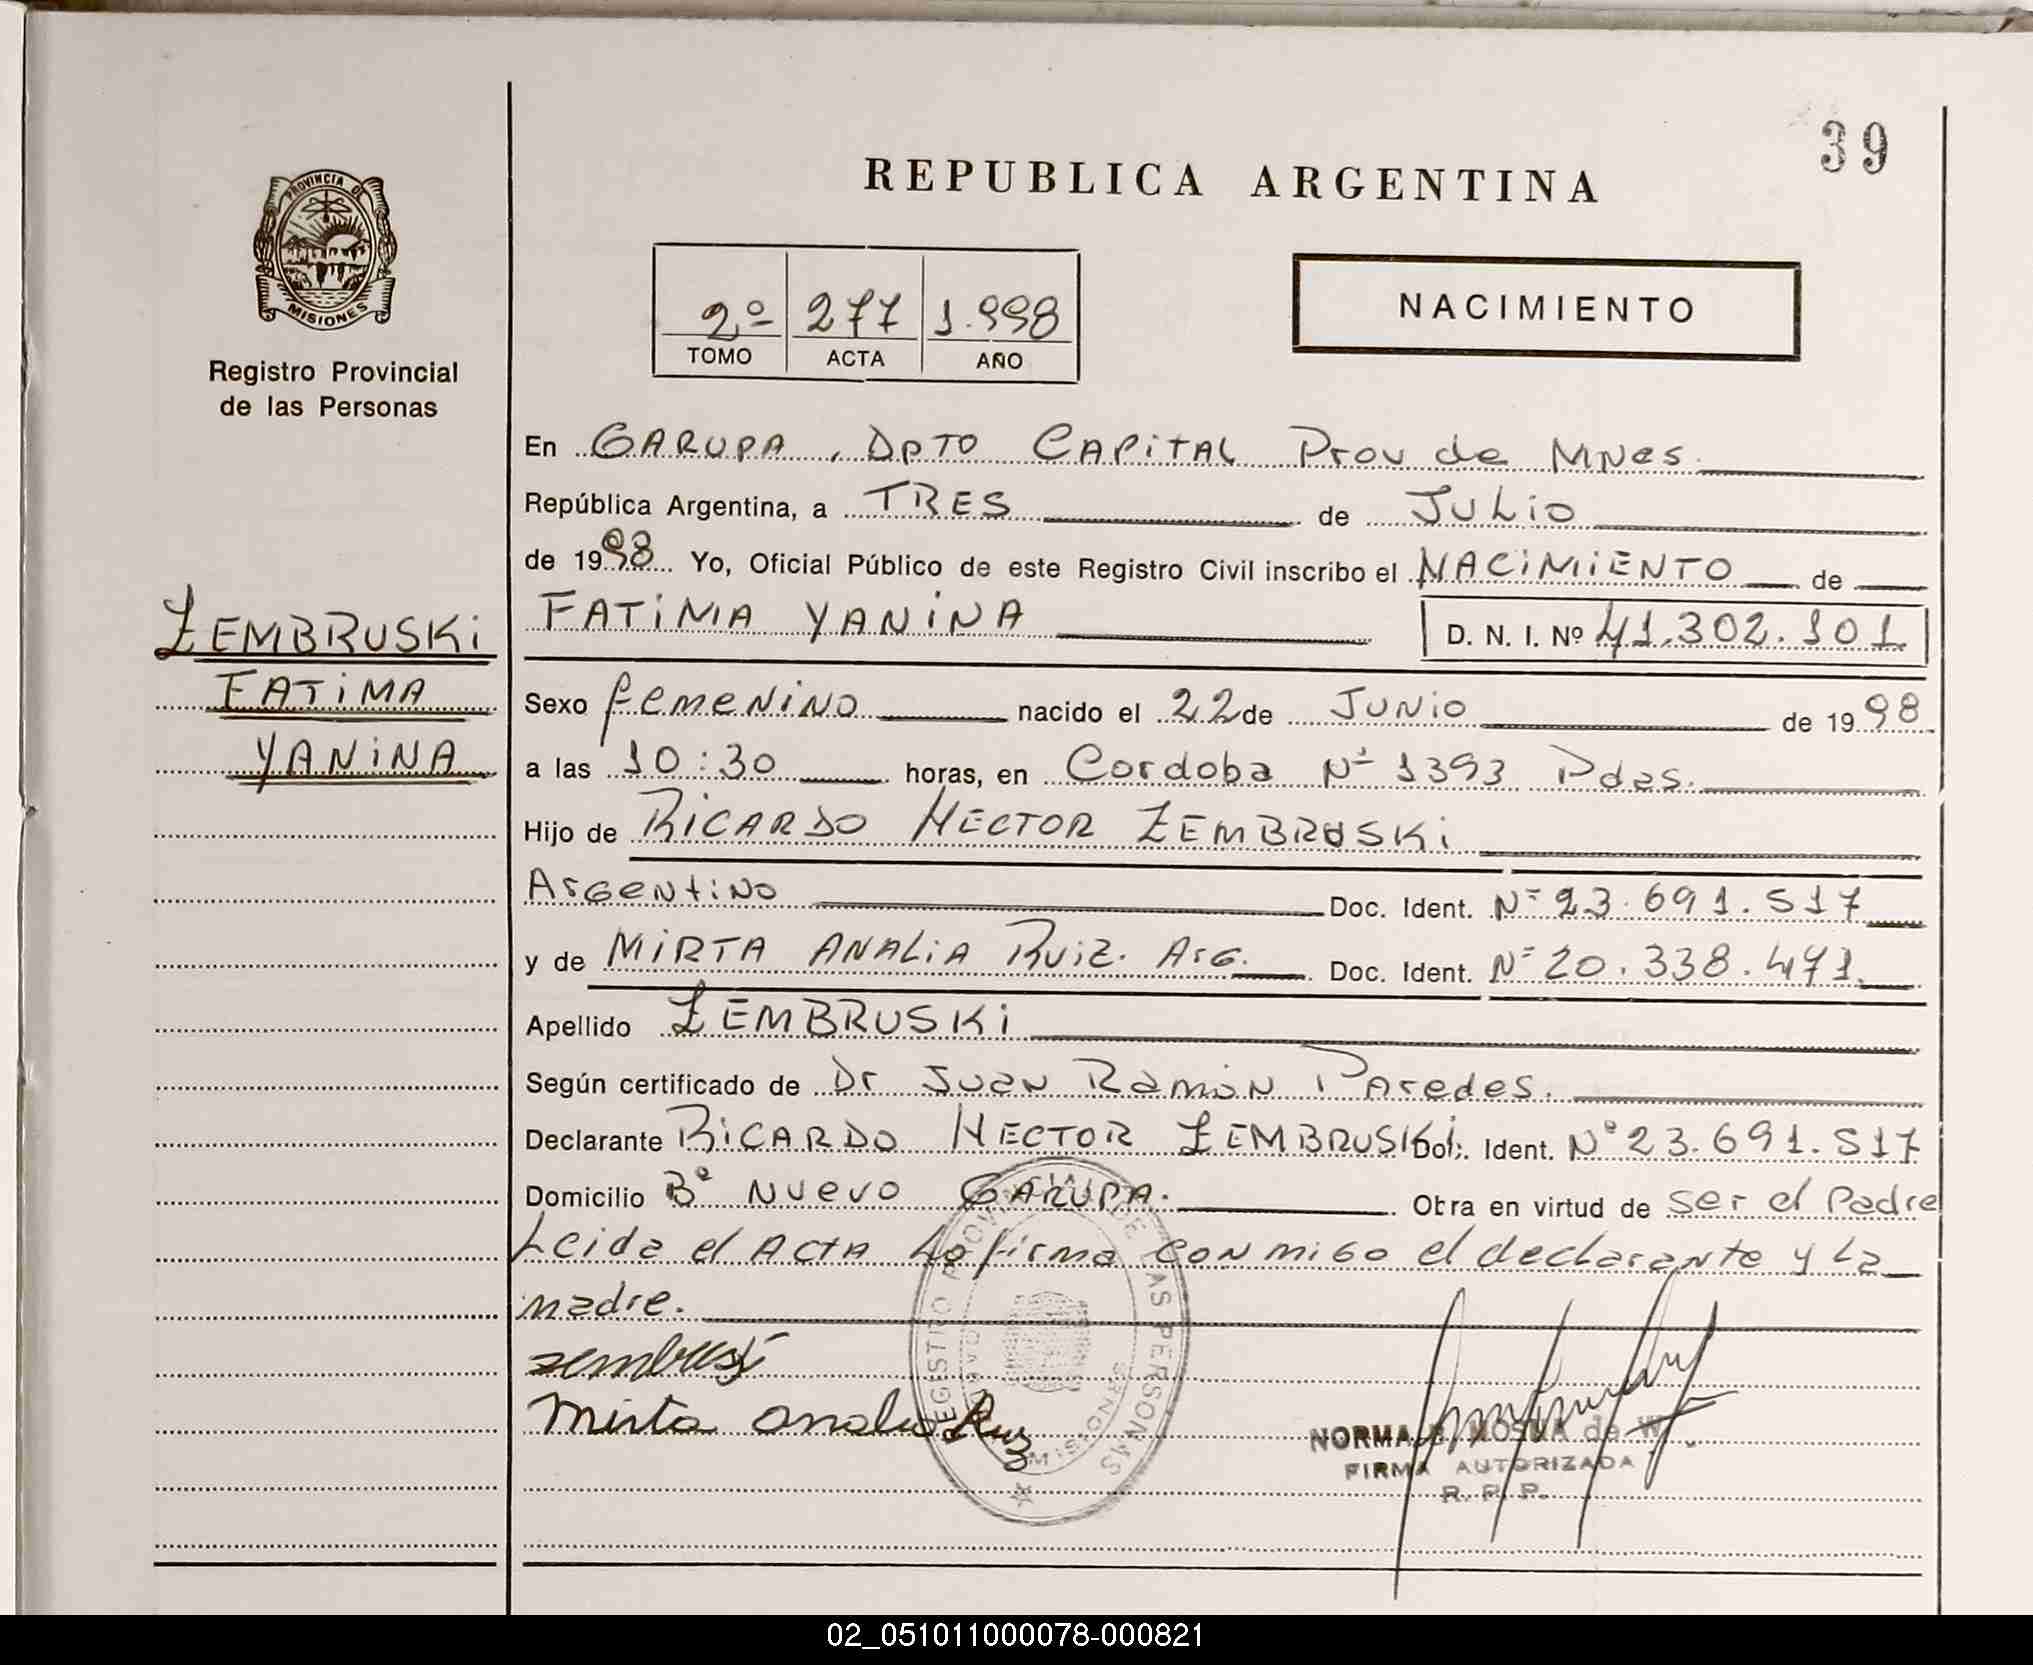 39
REPUBLICA ARGENTINA
PROVINCIA DE
MISIONES
Registro Provincial
de las Personas
2º 277 1.998
TOMO ACTA AÑO
NACIMIENTO
En GARUPA, DPTO CAPITAL Prov de MNes.
República Argentina, a TRES de JULIO
de 1998 Yo, Oficial Público de este Registro Civil inscribo el NACIMIENTO de
ZEMBRUSKI
FATIMA
YANINA
FATIMA YANINA D. N. I. Nº 41.302.101
Sexo femenino nacido el 22 de JUNIO de 1998
a las 10:30 horas, en Cordoba Nº 1393 Pdas.
Hijo de RICARDO HECTOR ZEMBRUSKI
Argentino Doc. Ident. Nº 23.691.517
y de MIRTA ANALIA RUIZ. Arg. Doc. Ident. Nº 20.338.471.
Apellido ZEMBRUSKI
Según certificado de Dr Juan Ramón Paredes.
Declarante RICARDO HECTOR ZEMBRUSKI Doc. Ident. Nº 23.691.517
Domicilio Bº NUEVO GARUPA. Obra en virtud de ser el Padre
Leida el ACTA la firma conmigo el declarante y la
madre.
Mirta Analia Ruiz
REGISTRO PROVINCIAL DE LAS PERSONAS
MISIONES
NORMA B. MOSNA de W.
FIRMA AUTORIZADA
R. P. P.
02_051011000078-000821